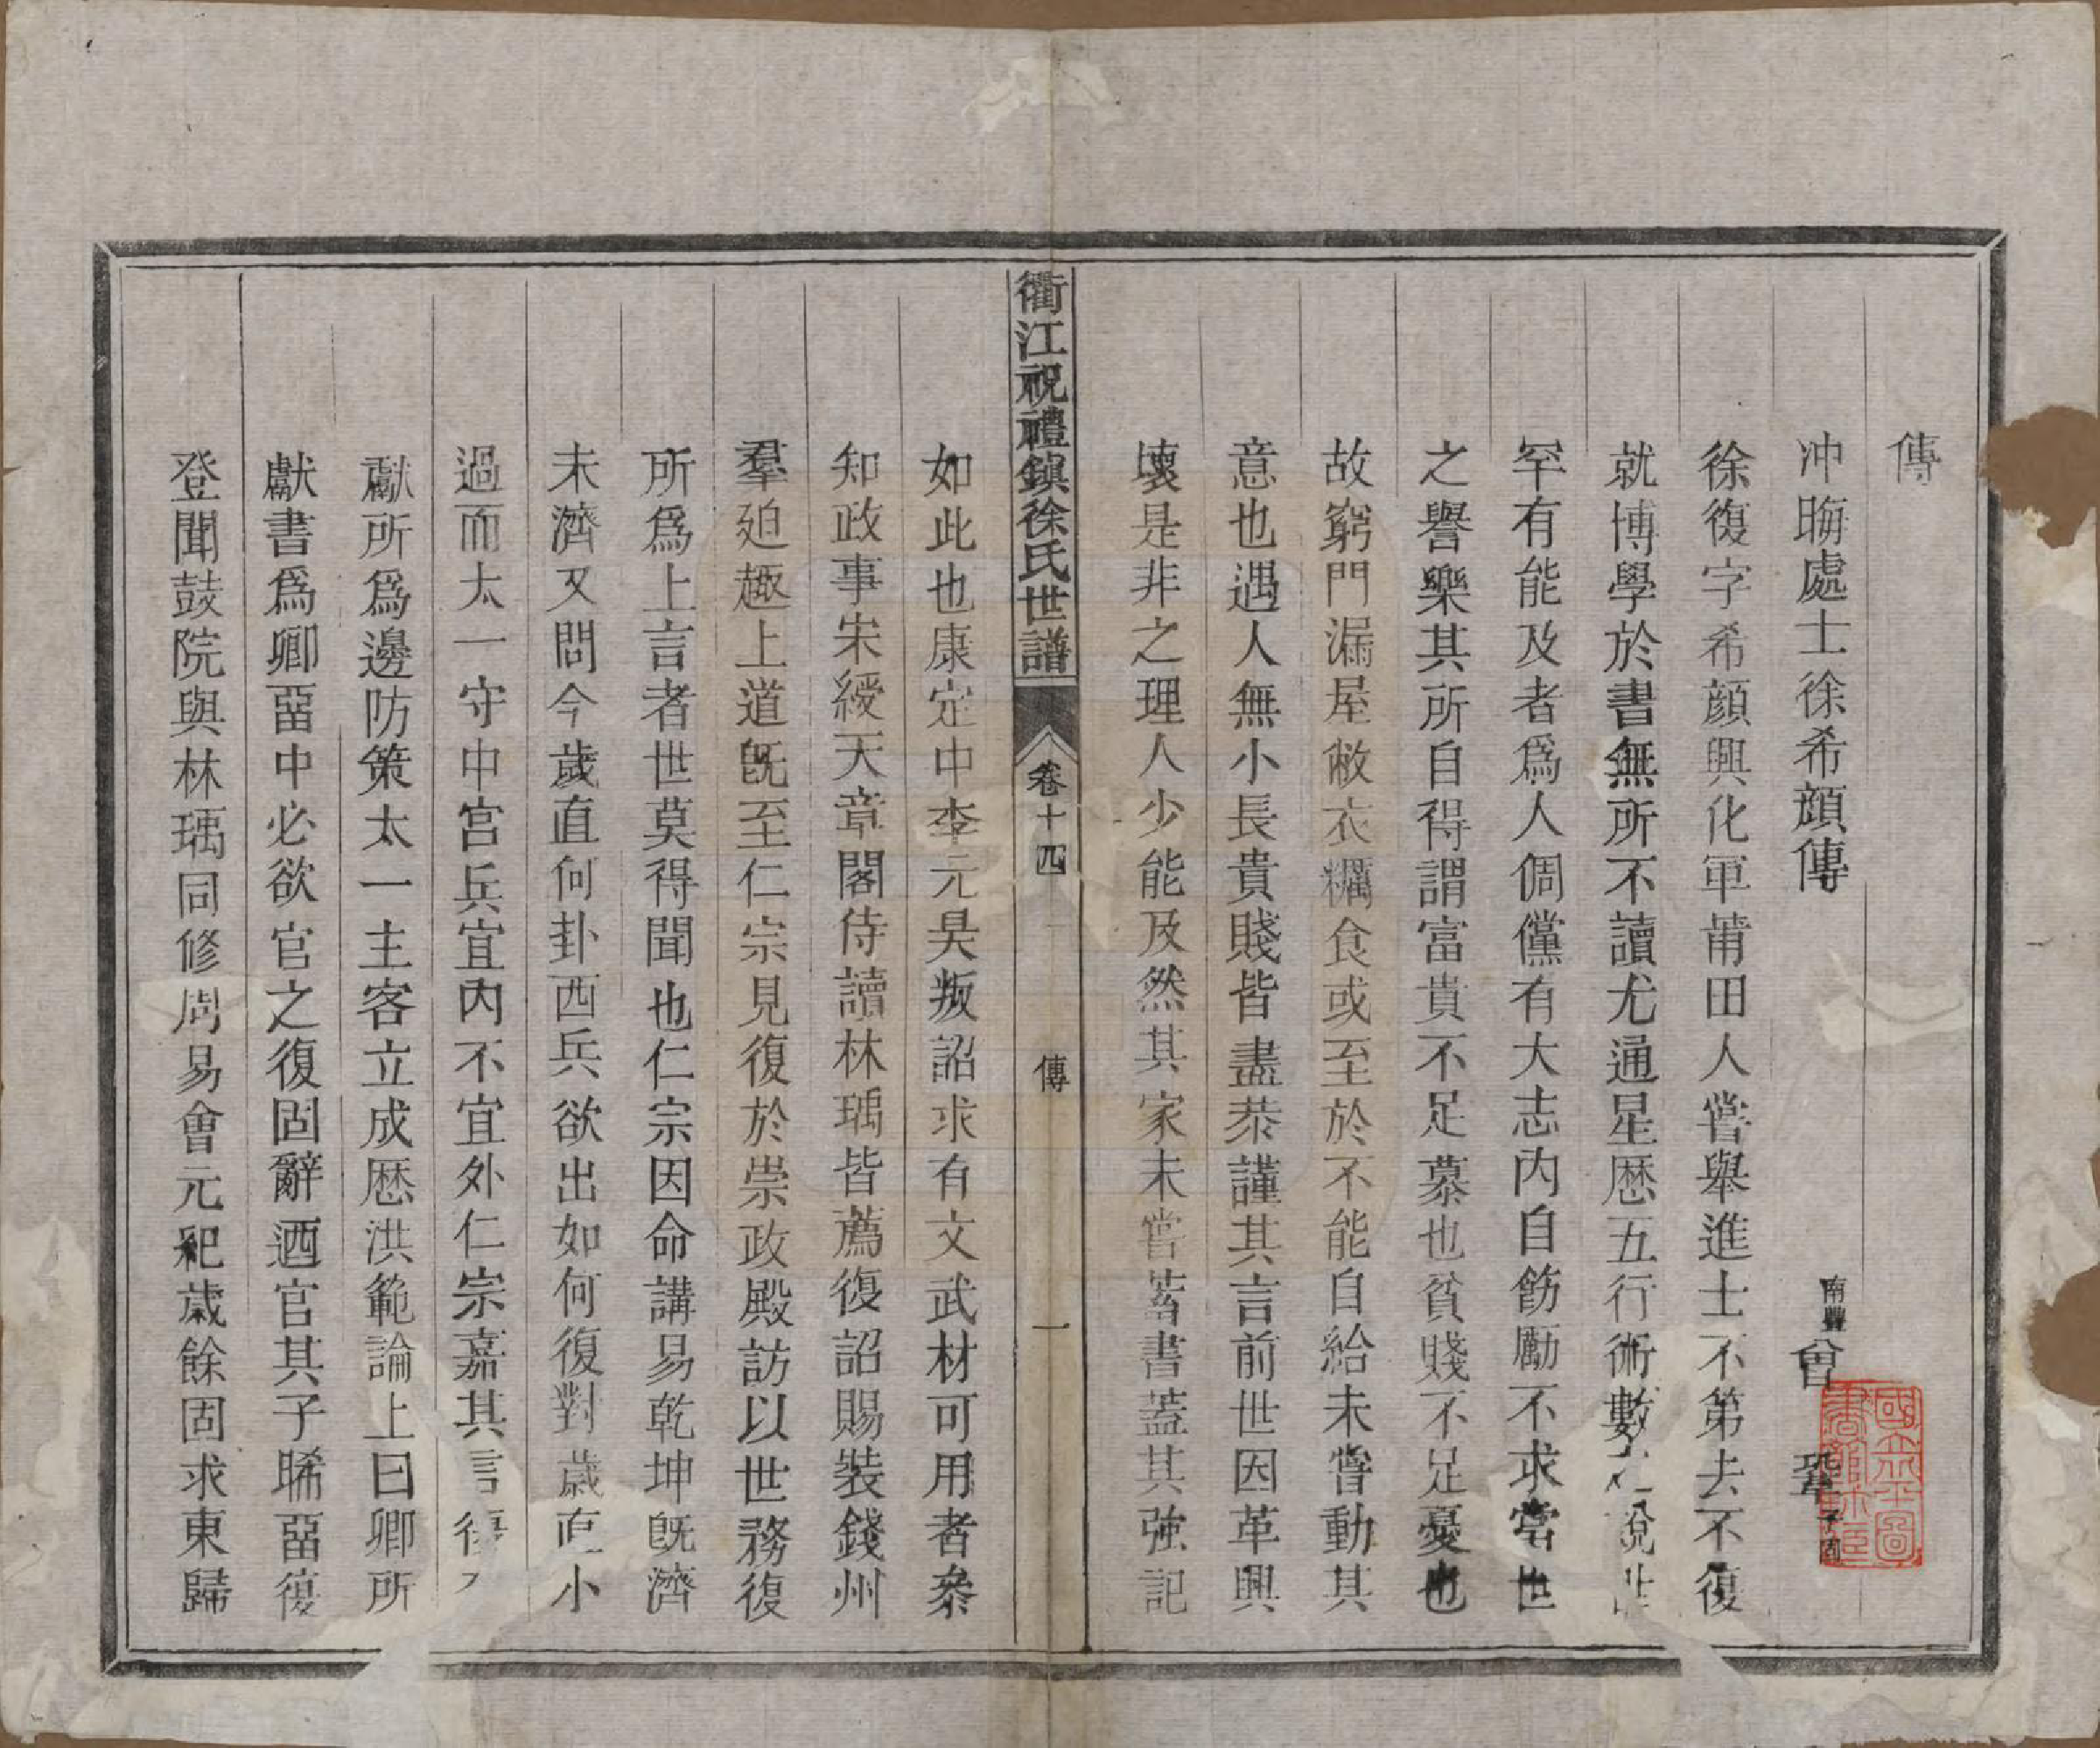 傳
冲晦處士徐希顔傳
南豐曾鞏子固
徐復字希顔興化軍莆田人嘗舉進士不第去不復
就博學於書無所不讀尤通星厯五行術數之說世
罕有能及者爲人倜儻有大志内自飭勵不求當世
之譽樂其所自得謂富貴不足慕也貧賤不足憂也
故窮門漏屋敝衣糲食或至於不能自給未嘗動其
意也遇人無小長貴賤皆盡恭謹其言前世因革興
壞是非之理人少能及然其家未嘗蓄書蓋其強記
衢江祝禮鎮徐氏世譜
卷十四
傳
一
如此也康定中李元昊叛詔求有文武材可用者叅
知政事宋綬天章閣侍讀林瑀皆薦復詔賜裝錢州
羣廹趣上道旣至仁宗見復於崇政殿訪以世務復
所爲上言者世莫得聞也仁宗因命講易乾坤旣濟
未濟又問今歲直何卦西兵欲出如何復對歲直小
過而太一守中宫兵宜内不宜外仁宗嘉其言復
獻所爲邊防策太一主客立成厯洪範論上曰卿所
獻書爲卿畱中必欲官之復固辭迺官其子晞畱復
登聞鼓院與林瑀同修周易會元紀歲餘固求東歸
國立北平圖書館珍藏